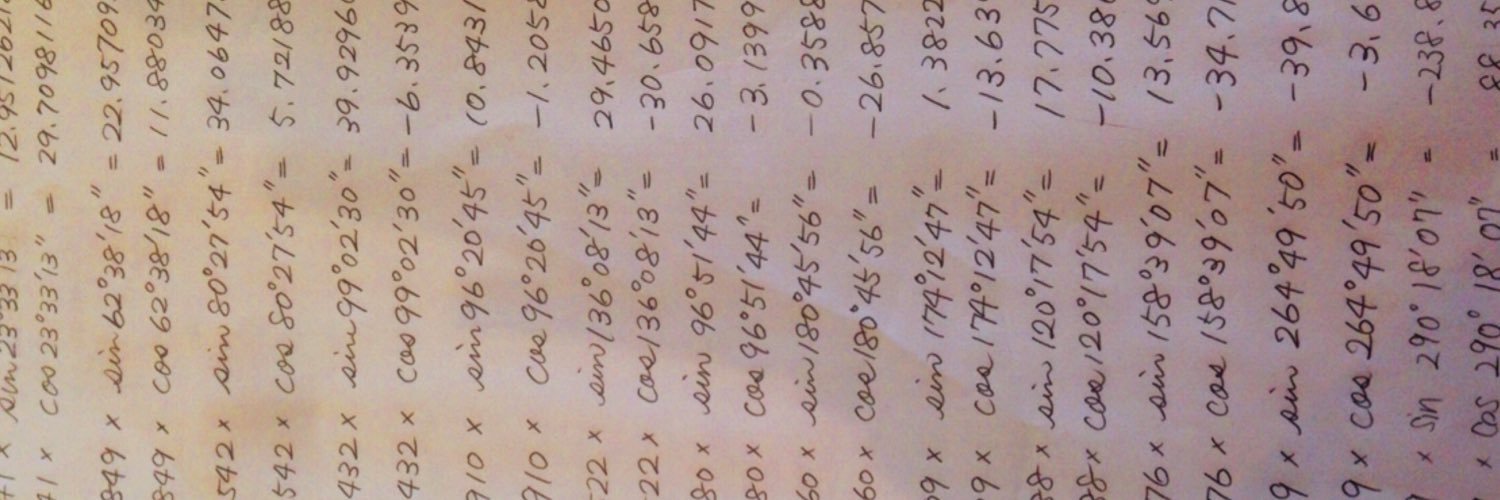 41 × sin 23°33'13" = 12.951262
41 × cos 23°33'13" = 29.7098116
849 × sin 62°38'18" = 22.95709
849 × cos 62°38'18" = 11.88034
542 × sin 80°27'54" = 34.0647
542 × cos 80°27'54" = 5.72188
432 × sin 99°02'30" = 39.9296
432 × cos 99°02'30" = -6.3539
910 × sin 96°20'45" = 10.8431
910 × cos 96°20'45" = -1.2058
522 × sin 136°08'13" = 29.4650
522 × cos 136°08'13" = -30.658
80 × sin 96°51'44" = 26.0917
80 × cos 96°51'44" = -3.1399
60 × sin 180°45'56" = -0.3588
60 × cos 180°45'56" = -26.857
09 × sin 174°12'47" = 1.3822
09 × cos 174°12'47" = -13.63
88 × sin 120°17'54" = 17.775
88 × cos 120°17'54" = -10.38
76 × sin 158°39'07" = 13.56
76 × cos 158°39'07" = -34.71
9 × sin 264°49'50" = -39.8
9 × cos 264°49'50" = -3.6
× sin 290°18'07" = -238.8
× cos 290°18'07" = 88.35